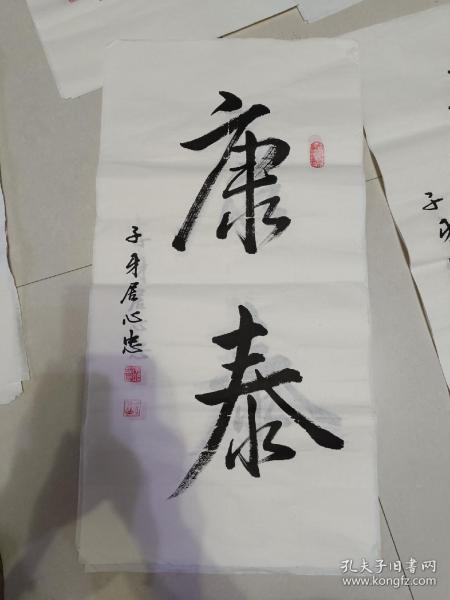 康泰
子牙居心忠
子
孔夫子旧书网
www.kongfz.com